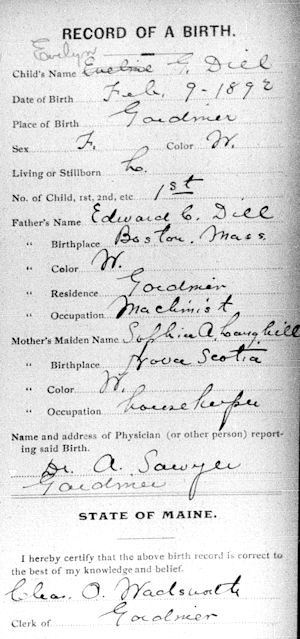 RECORD OF A BIRTH.
Evelyn
Child's Name Eveline G. Dill
Date of Birth Feb. 9-1892
Place of Birth Gardiner
Sex F. Color W.
Living or Stillborn L.
No. of Child, 1st, 2nd, etc 1st
Father's Name Edward C. Dill
" Birthplace Boston, Mass
" Color W.
" Residence Gardiner
" Occupation Machinist
Mother's Maiden Name Sophia A.
" Birthplace Nova Scotia
" Color W.
" Occupation housekeeper
Name and address of Physician (or other person) report-
ing said Birth.
Dr. A. Sawyer
Gardiner
STATE OF MAINE.
I hereby certify that the above birth record is correct to
the best of my knowledge and belief.
Chas. O. Wadsworth
Clerk of Gardiner